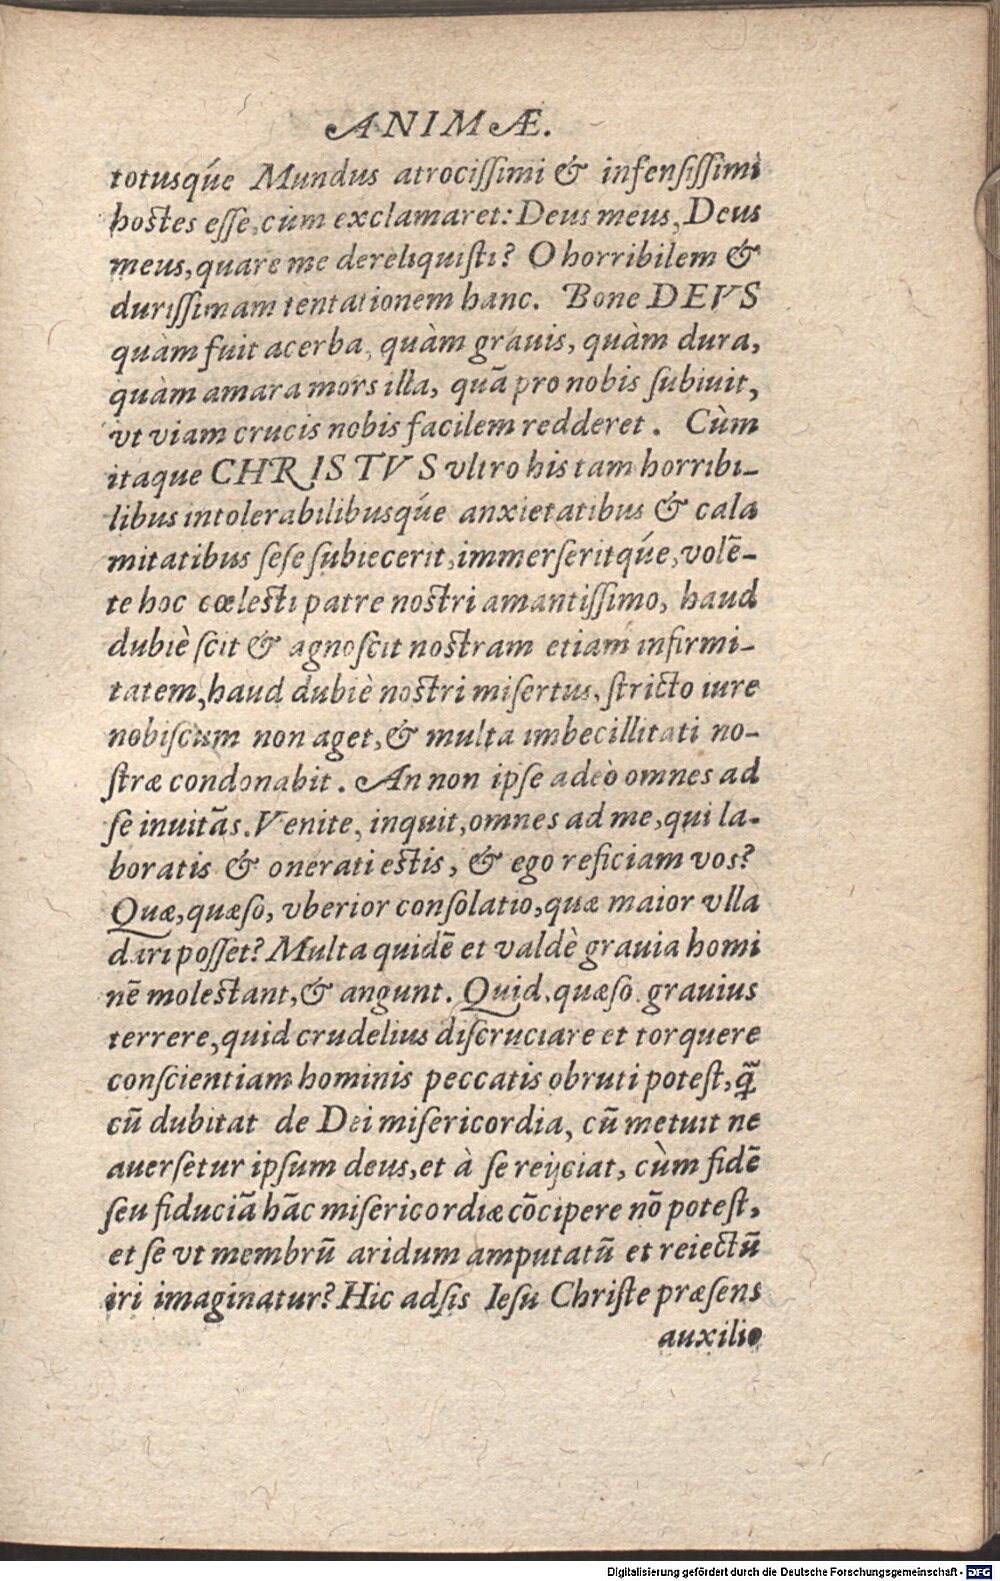 ANIMÆ.
totusq́ue Mundus atrocissimi & infensissimi
hostes esse, cùm exclamaret: Deus meus, Deus
meus, quare me dereliquisti? O horribilem &
durissimam tentationem hanc. Bone DEVS
quàm fuit acerba, quàm grauis, quàm dura,
quàm amara mors illa, quā pro nobis subiuit,
vt viam crucis nobis facilem redderet. Cùm
itaque CHRISTVS vltro his tam horribi-
libus intolerabilibusq́ue anxietatibus & cala
mitatibus sese subiecerit, immerseritq́ue, volē-
te hoc cœlesti patre nostri amantissimo, haud
dubiè scit & agnoscit nostram etiam infirmi-
tatem, haud dubiè nostri misertus, stricto iure
nobiscum non aget, & multa imbecillitati no-
stræ condonabit. An non ipse adeò omnes ad
se inuitās. Venite, inquit, omnes ad me, qui la-
boratis & onerati estis, & ego reficiam vos?
Quæ, quæso, vberior consolatio, quæ maior vlla
dari posset? Multa quidē et valdè grauia homi
nē molestant, & angunt. Quid, quæso grauius
terrere, quid crudelius discruciare et torquere
conscientiam hominis peccatis obruti potest, q̃
cū dubitat de Dei misericordia, cū metuit ne
auersetur ipsum deus, et à se reijciat, cùm fidē
seu fiduciā hāc misericordiæ cōcipere nō potest,
et se vt membrū aridum amputatū et reiectū
iri imaginatur? Hic adsis Iesu Christe præsens
auxilio
Digitalisierung gefördert durch die Deutsche Forschungsgemeinschaft - DFG